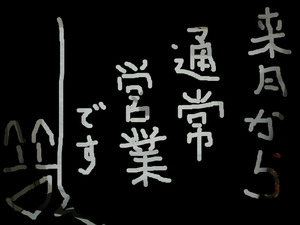 来月から
通常
営業
です